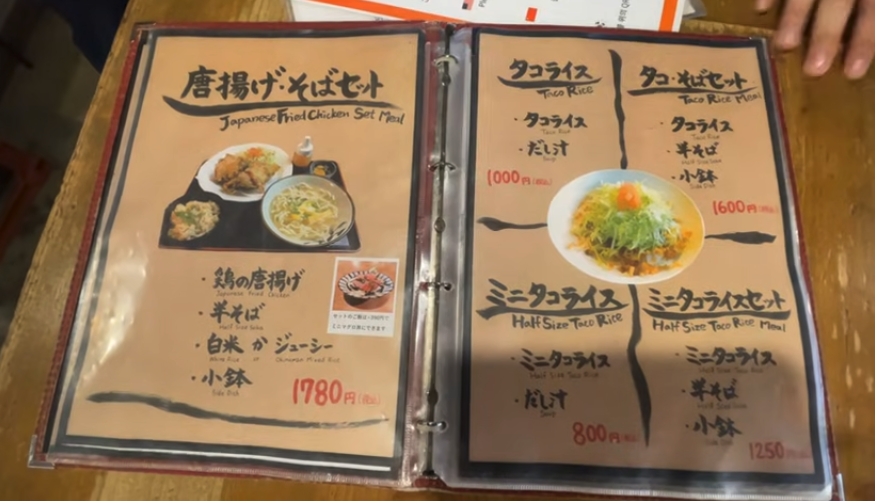 唐揚げ・そばセット
Japanese Fried Chicken Set Meal
・鶏の唐揚げ
Japanese Fried Chicken
・半そば
Half Size Soba
・白米 か ジューシー
White Rice or Okinawan Mixed Rice
・小鉢
Side Dish
1780円(税込)
タコライス
Taco Rice
・タコライス
Taco Rice
・だし汁
Soup
1000円(税込)
タコ・そばセット
Taco Rice Meal
・タコライス
Taco Rice
・半そば
Half Size Soba
・小鉢
Side Dish
1600円(税込)
ミニタコライス
Half Size Taco Rice
・ミニタコライス
Half Size Taco Rice
・だし汁
Soup
800円(税込)
ミニタコライスセット
Half Size Taco Rice Meal
・ミニタコライス
Half Size Taco Rice
・半そば
Half Size Soba
・小鉢
Side Dish
1250円(税込)